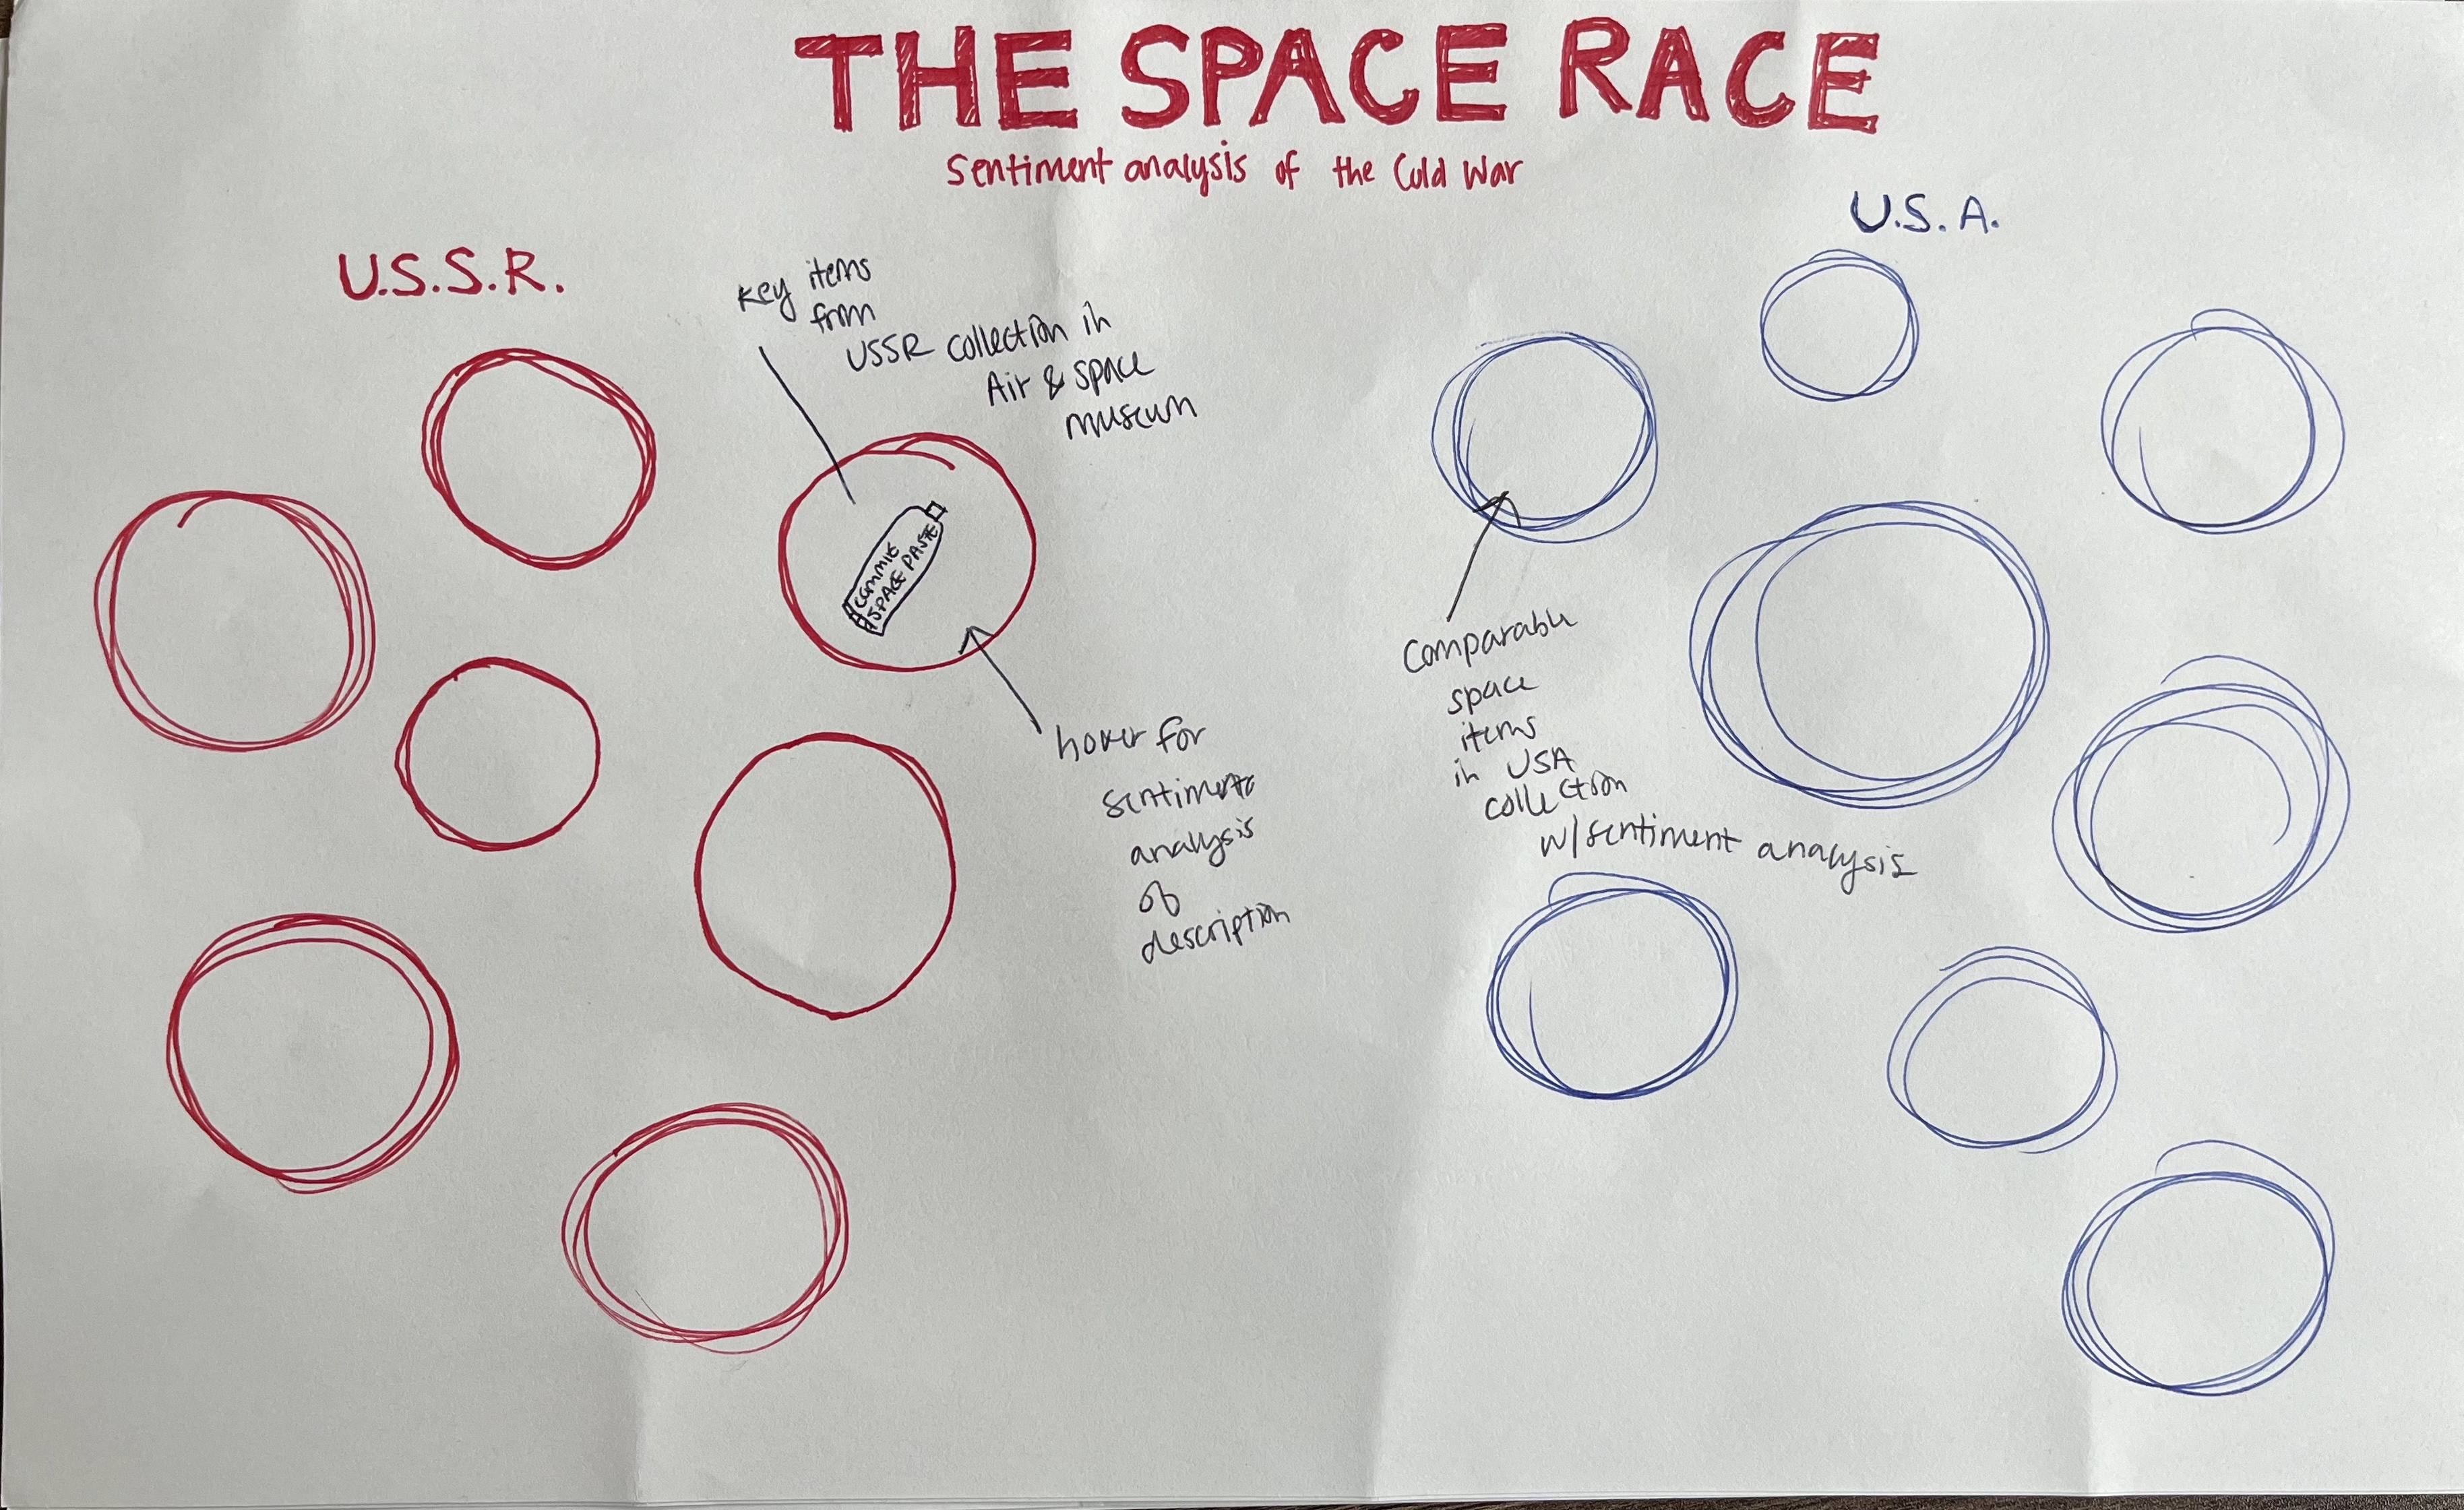 THE SPACE RACE
Sentiment analysis of the Cold War
U.S.S.R.
U.S.A.
Key items
from
USSR collection in
Air & space
museum
COMMIE
SPACE PASTE
hover for
sentiment
analysis
of
description
Comparable
space
items
in USA
collection
w/sentiment analysis